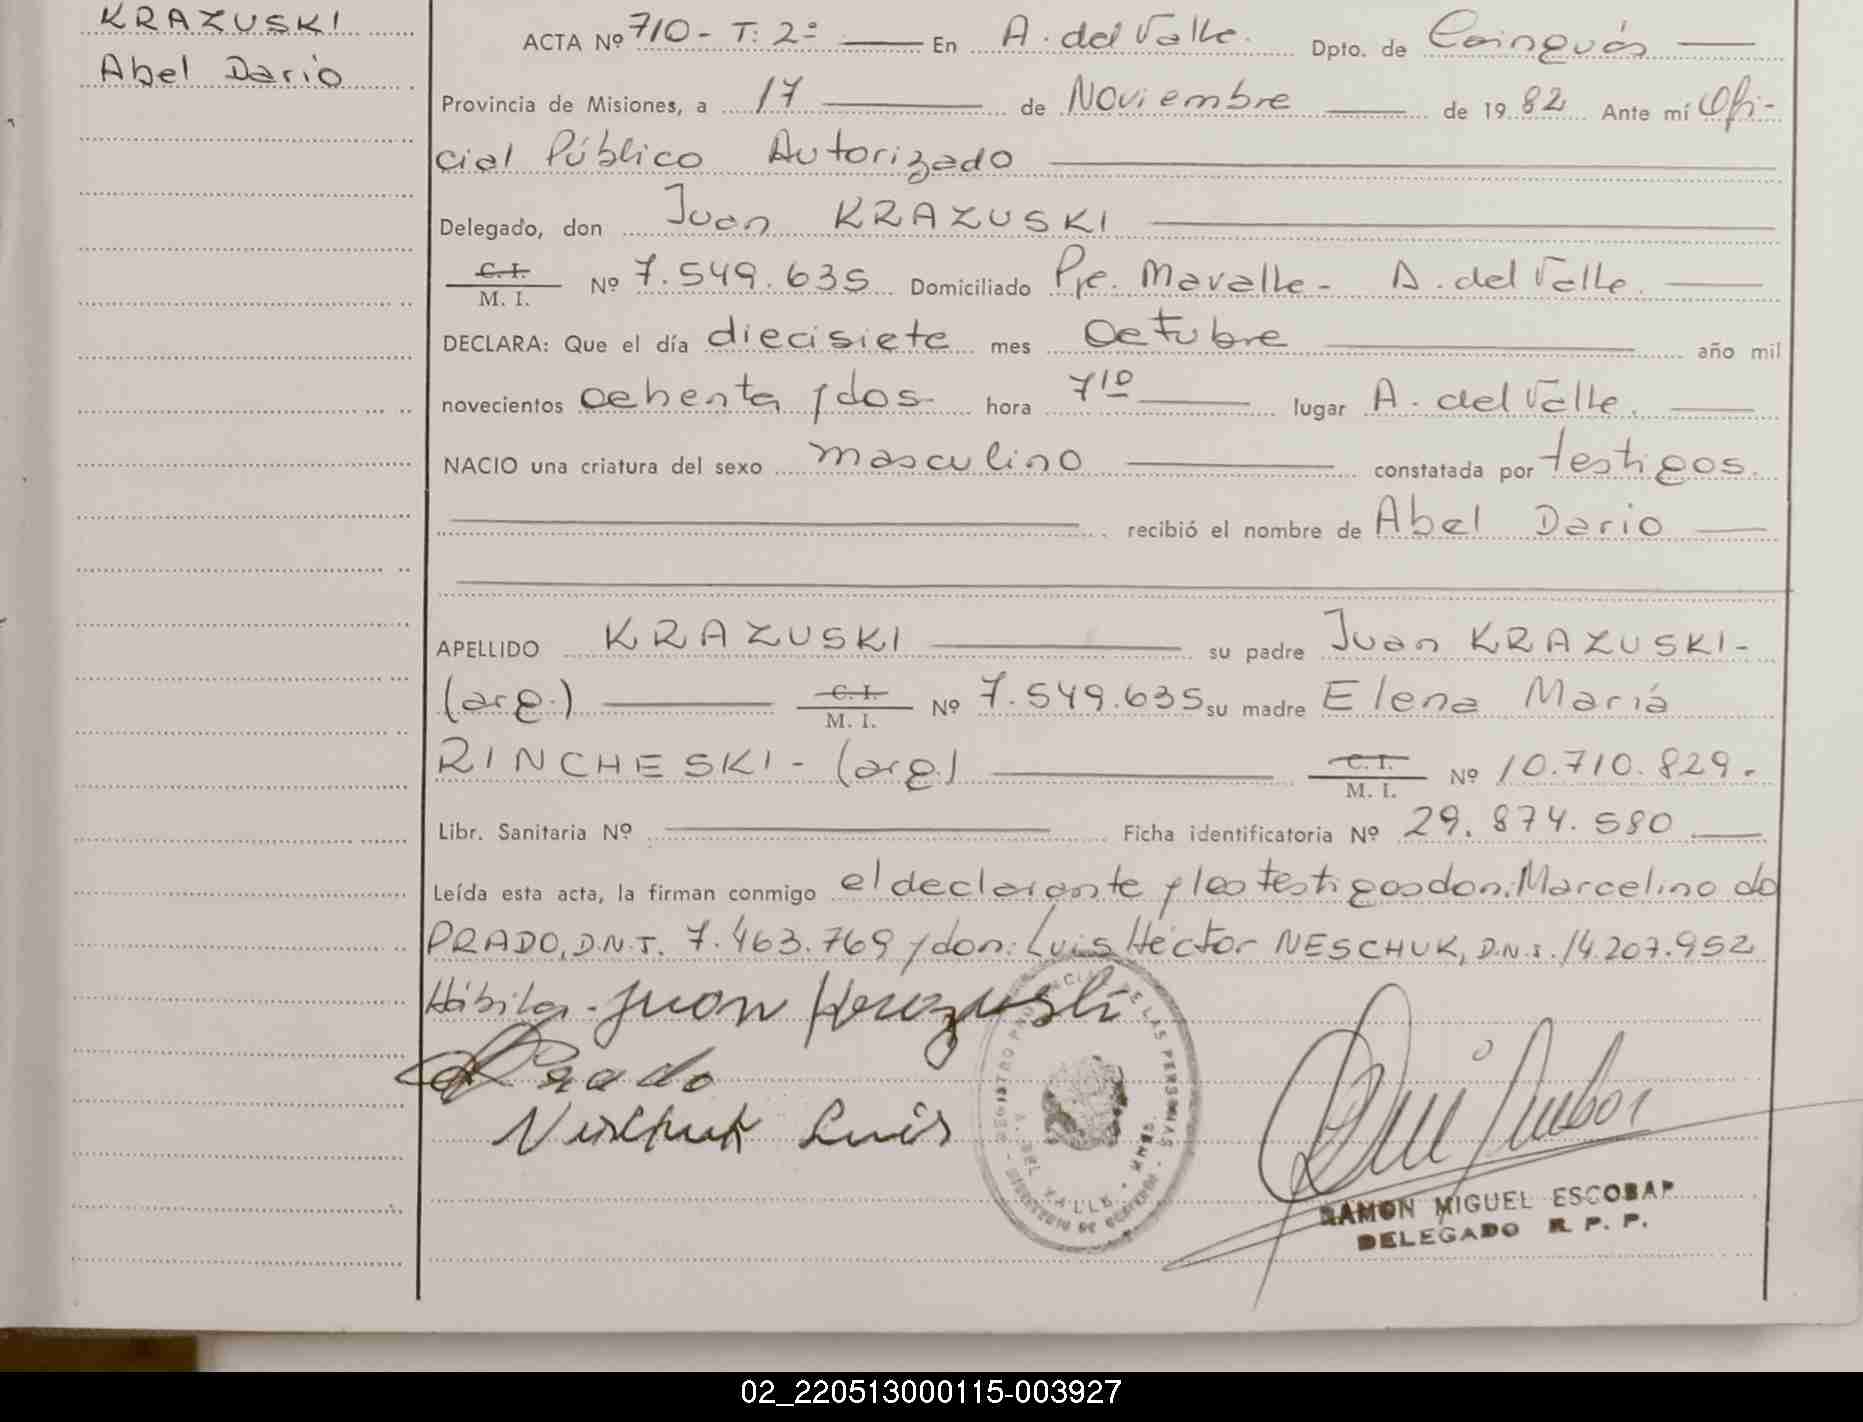 KRAZUSKI
Abel Dario
ACTA Nº 710 - T: 2º En A. del Valle. Dpto. de Cainguás
Provincia de Misiones, a 17 de Noviembre de 1982 Ante mí Ofi-
cial Público Autorizado
Delegado, don Juan KRAZUSKI
C. I.
M. I. Nº 7.549.635 Domiciliado Pje. Mavalle - A. del Valle.
DECLARA: Que el día diecisiete mes Octubre año mil
novecientos ochenta y dos hora 7 10 lugar A. del Valle.
NACIO una criatura del sexo masculino constatada por testigos.
recibió el nombre de Abel Dario
APELLIDO KRAZUSKI su padre Juan KRAZUSKI-
(arg.) C. I. M. I. Nº 7.549.635 su madre Elena Mariá
RINCHESKI - (arg) C. I. M. I. Nº 10.710.829.
Libr. Sanitaria Nº Ficha identificatoria Nº 29.874.580
Leída esta acta, la firman conmigo el declarante y los testigos don: Marcelino do
PRADO, D.N.I. 7.463.769 y don: Luis Héctor NESCHUK, D.N.I. 14.207.952
Hábiles - Juan Krazuski
Prado
Neschuk Luis
REGISTRO PROVINCIAL DE LAS PERSONAS
A. DEL VALLE - MNES.
RAMON MIGUEL ESCOBAR
DELEGADO R. P. P.
02_220513000115-003927